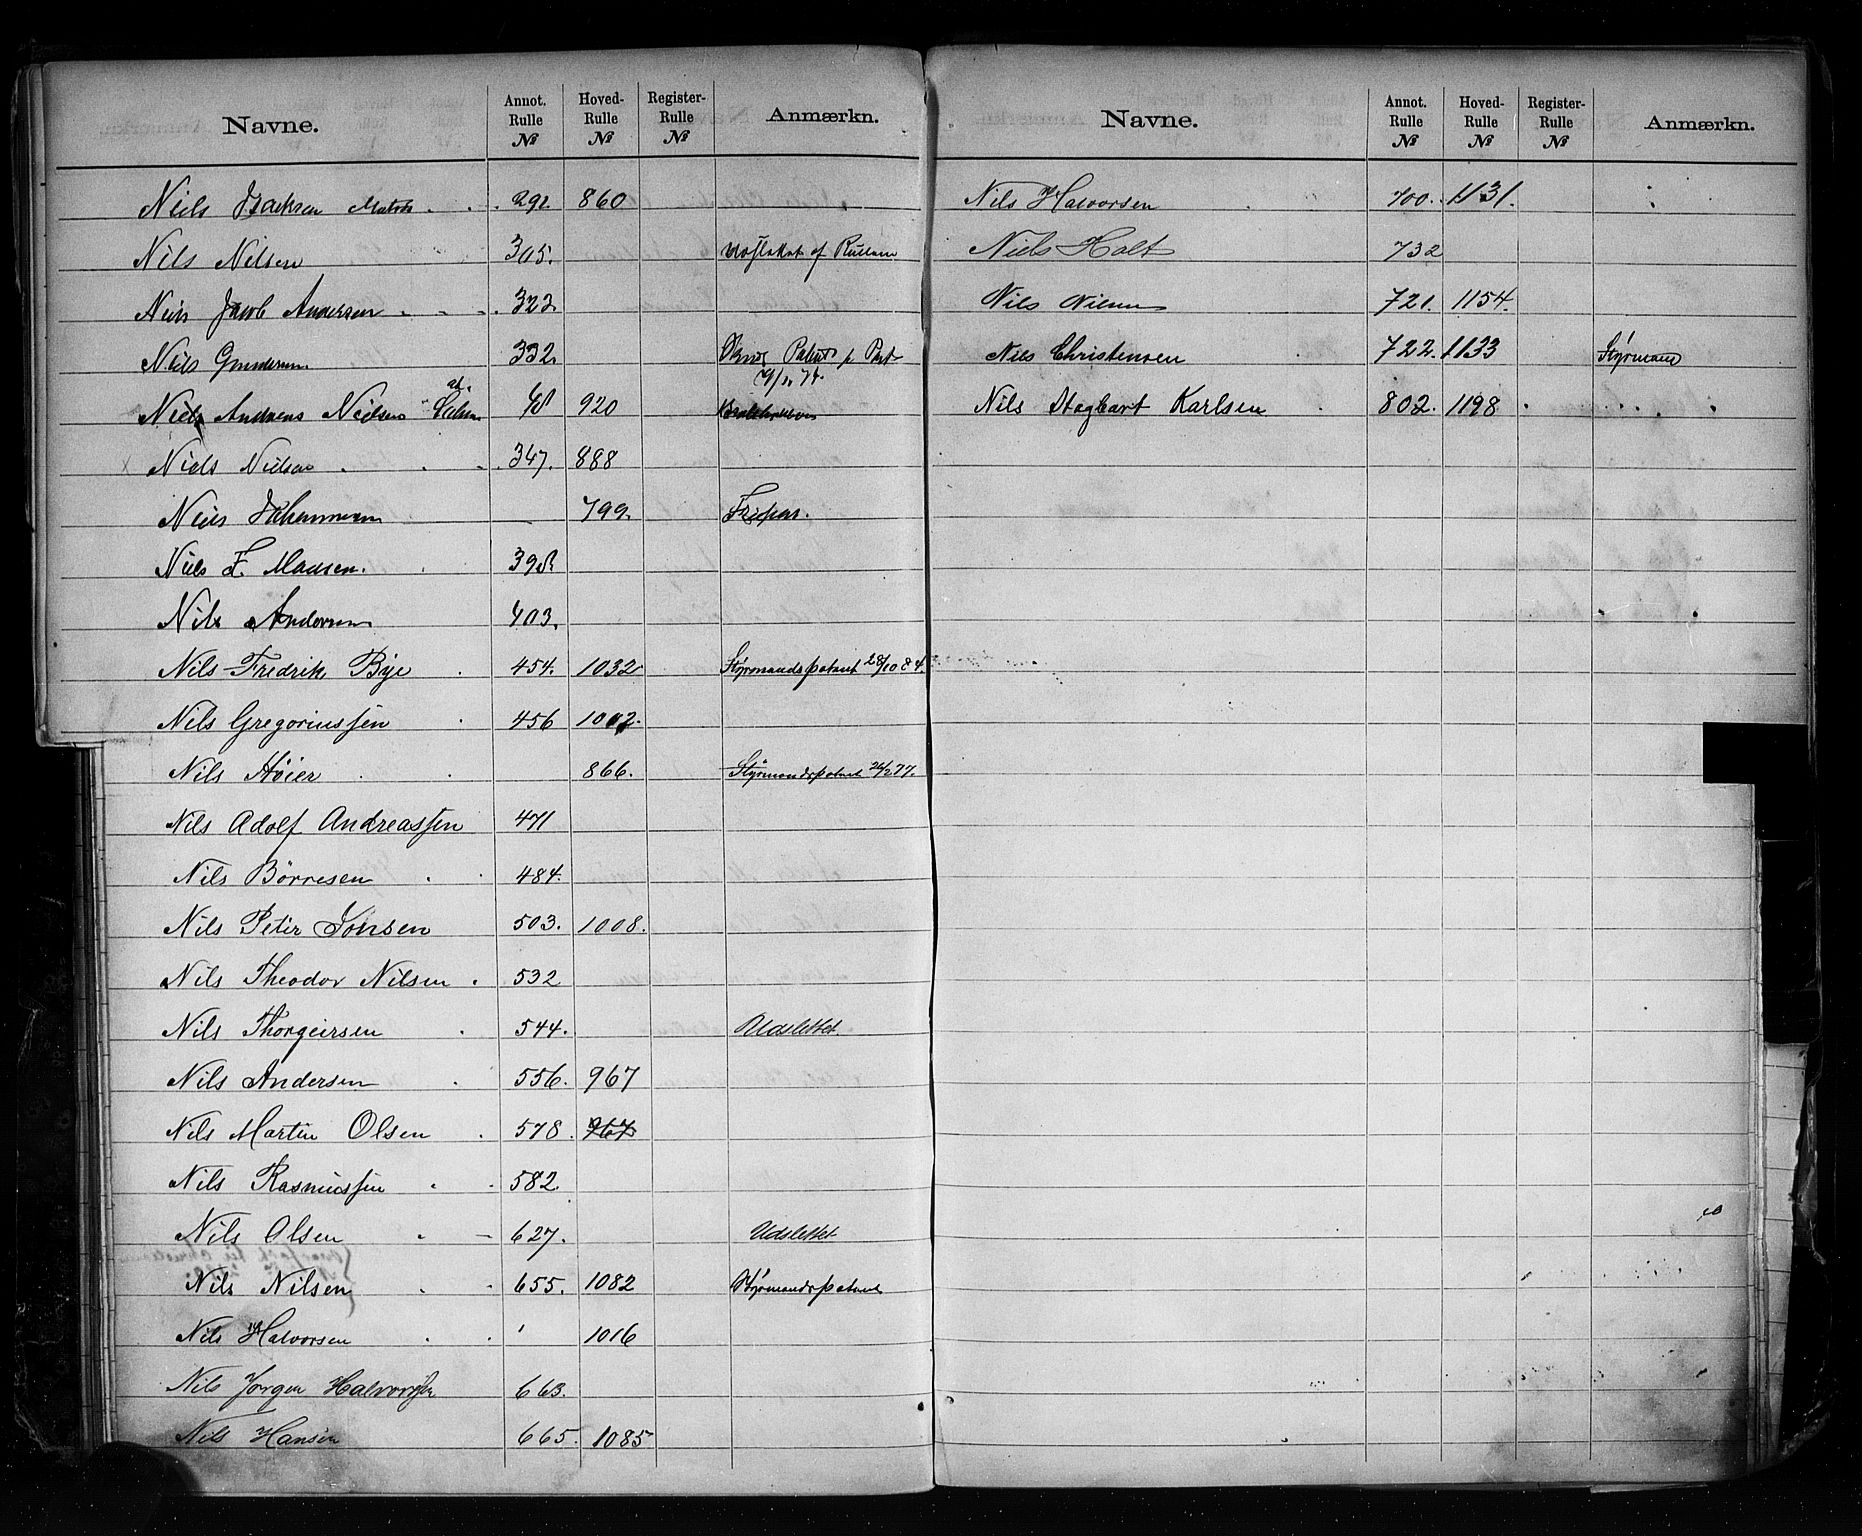 Navne. Annot. Rulle № Hoved-Rulle № Register-Rulle № Anmærkn.
Niels Isaksen Matros 291. 860
Nils Nilsen 305. Udslettet af Rullerne
Niels Jacob Andersen 323.
Niels Gundersen 332.
Niels Andreas Nielsen 48 920
Niels Nielsen 347. 888
Niels Johannesen 799. Fripas.
Niels F. Madsen. 398.
Nils Andersen 403.
Nils Fredrik Bye 454. 1032 Styrmandspatent 28/10 84.
Nils Gregoriussen 456 1002.
Nils Høier 866. Styrmandspatent 24/2 77.
Nils Adolf Andreassen 471
Nils Børresen 484.
Nils Peter Jonsen 503. 1008.
Nils Theodor Nilsen 532
Nils Thorgeirsen 544. Udslettet.
Nils Andersen 556. 967
Nils Martin Olsen 578. 967
Nils Rasmussen 582.
Nils Olsen 627. Udslettet
Nils Nilsen 655. 1082 Styrmandspatent
Nils Halvorsen 1016
Nils Jørgen Halvorsen 663.
Nils Hansen 665. 1085
Navne. Annot. Rulle № Hoved-Rulle № Register-Rulle № Anmærkn.
Nils Halvorsen 700. 1131.
Niels Holt 732
Nils Nilsen 721. 1154.
Nils Christensen 722. 1133 Styrmand
Nils Dagbart Karlsen 802. 1198